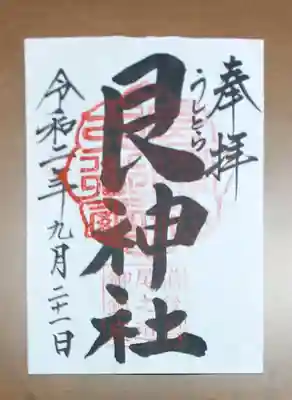 奉拝
うしとら
艮神社
令和二年九月二十一日